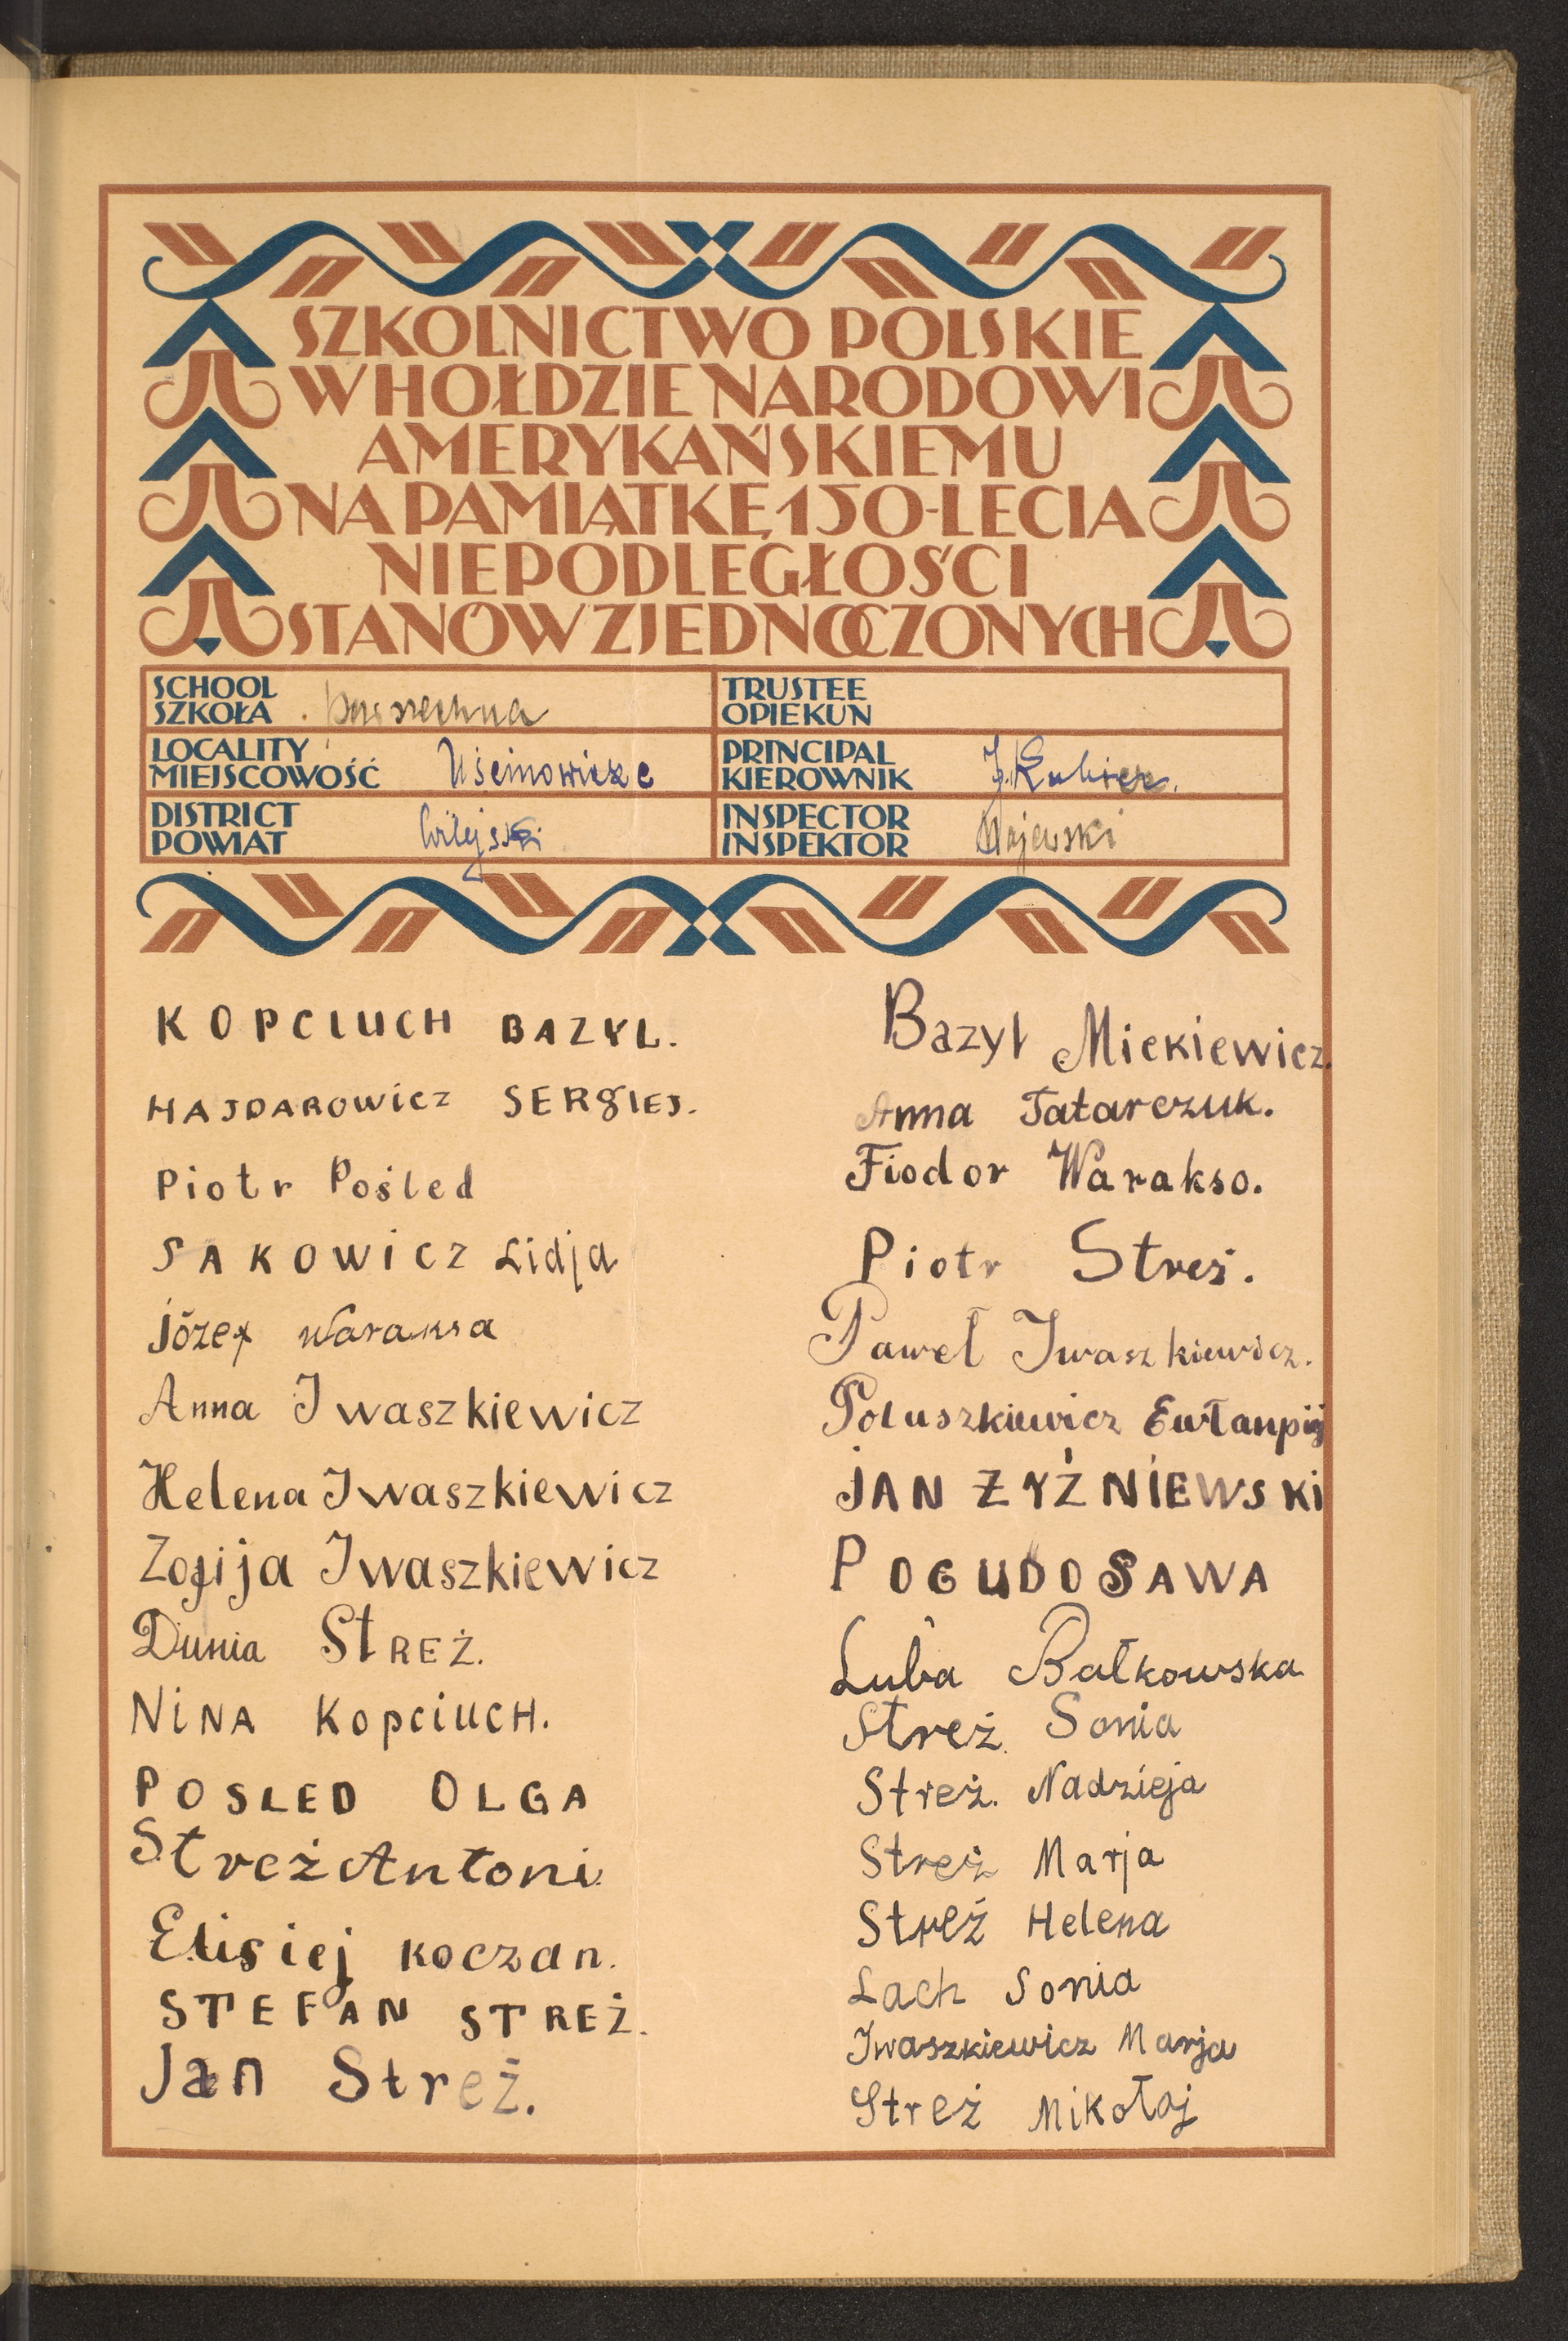 SZKOLNICTWO POLSKIE
W HOŁDZIE NARODOWI
AMERYKAŃSKIEMU
NA PAMIĄTKĘ 150-LECIA
NIEPODLEGŁOŚCI
STANÓW ZJEDNOCZONYCH
SCHOOL
SZKOŁA Powszechna
TRUSTEE
OPIEKUN
LOCALITY
MIEJSCOWOŚĆ Uścinowicze
PRINCIPAL
KIEROWNIK
DISTRICT
POWIAT Wilejski
INSPECTOR
INSPEKTOR Majewski
KOPCIUCH BAZYL.
HAJDAROWicz SERgIEJ.
Piotr Pośled
SAKOWicz Lidja
józef Waraksa
Anna Iwaszkiewicz
Helena Iwaszkiewicz
Zofija Iwaszkiewicz
Dunia STREŻ.
NiNA KopciucH.
POSLED OLGA
Streż Antoni
Elisiej koczan.
STEFAN STREŻ.
Jan Streż.
Bazyl Mickiewicz.
Anna Tatarczuk.
Fiodor Warakso.
Piotr Streż.
Paweł Iwaszkiewicz.
Poluszkiewicz Ewłanpij
JAN ŻYŹNIEWSKi
POGUDO SAWA
Luba Bałkowska
Streż Sonia
Streż. Nadzieja
Streż Marja
Streż Helena
Lach Sonia
Iwaszkiewicz Marja
Streż Mikołaj